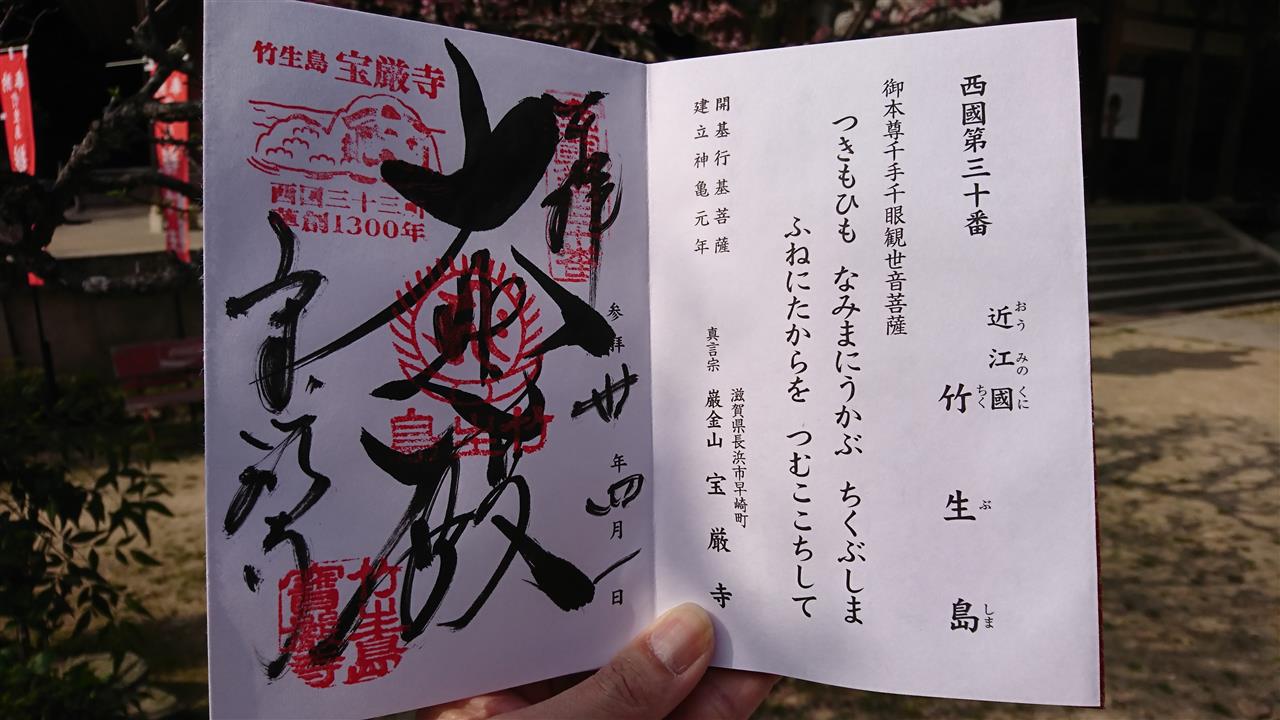 西國第三十番
近江國
おうみのくに
竹生島
ちくぶしま
御本尊千手千眼観世音菩薩
つきもひも なみまにうかぶ ちくぶしま
ふねにたからを つむここちして
開基行基菩薩
建立神亀元年
滋賀県長浜市早崎町
真言宗 巌金山 宝厳寺
奉拝
参拝 廿 年 四 月 一 日
大悲殿
竹生島
竹生島 宝厳寺
西国三十三所
草創1300年
宝厳寺
竹生島
寶嚴寺